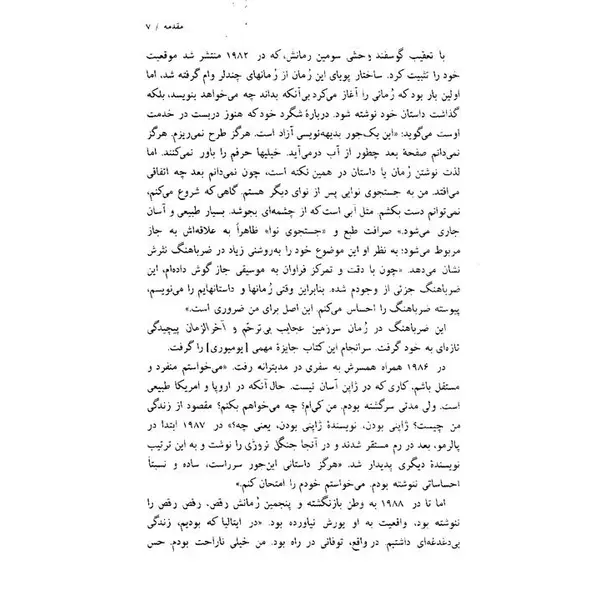 مقدمه / ۷
با تعقیب گوسفند وحشی سومین رمانش، که در ۱۹۸۲ منتشر شد موقعیت
خود را تثبیت کرد. ساختار پویای این رُمان از رُمانهای چندلر وام گرفته شد، اما
اولین بار بود که رُمانی را آغاز می‌کرد بی‌آنکه بداند چه می‌خواهد بنویسد، بلکه
گذاشت داستان خود نوشته شود. دربارهٔ شگرد خود که هنوز دربست در خدمت
اوست می‌گوید: «این یک‌جور بدیهه‌نویسی آزاد است. هرگز طرح نمی‌ریزم. هرگز
نمی‌دانم صفحهٔ بعد چطور از آب درمی‌آید. خیلیها حرفم را باور نمی‌کنند. اما
لذت نوشتن رُمان یا داستان در همین نکته است، چون نمی‌دانم بعد چه اتفاقی
می‌افتد. من به جستجوی نوایی پس از نوای دیگر هستم. گاهی که شروع می‌کنم،
نمی‌توانم دست بکشم. مثل آبی است که از چشمه‌ای بجوشد. بسیار طبیعی و آسان
جاری می‌شود.» صرافت طبع و «جستجوی نوا» ظاهراً به علاقه‌اش به جاز
مربوط می‌شود؛ به نظر او این موضوع خود را به‌روشنی زیاد در ضرباهنگ نثرش
نشان می‌دهد. «چون با دقت و تمرکز فراوان به موسیقی جاز گوش داده‌ام، این
ضرباهنگ جزئی از وجودم شده. بنابراین وقتی رُمانها و داستانهایم را می‌نویسم،
پیوسته ضرباهنگ را احساس می‌کنم. این اصل برای من ضروری است.»
این ضرباهنگ در رُمان سرزمین عجایب بی‌ترحّم و آخرالزمان پیچیدگی
تازه‌ای به خود گرفت. سرانجام این کتاب جایزهٔ مهمی [یومیوری] را گرفت.
در ۱۹۸۶ همراه همسرش به سفری در مدیترانه رفت. «می‌خواستم منفرد و
مستقل باشم، کاری که در ژاپن آسان نیست. حال آنکه در اروپا و امریکا طبیعی
است. ولی مدتی سرگشته بودم. من کی‌ام؟ چه می‌خواهم بکنم؟ مقصود از زندگی
من چیست؟ ژاپنی بودن، نویسندهٔ ژاپنی بودن، یعنی چه؟» در ۱۹۸۷ ابتدا در
پالرمو، بعد در رم مستقر شدند و در آنجا جنگل نروژی را نوشت و به این ترتیب
نویسندهٔ دیگری پدیدار شد. «هرگز داستانی این‌جور سرراست، ساده و نسبتاً
احساساتی ننوشته بودم. می‌خواستم خودم را امتحان کنم.»
اما تا در ۱۹۸۸ به وطن بازنگشته و پنجمین رُمانش رقص، رقص رقص را
ننوشته بود، واقعیت به او یورش نیاورده بود. «در ایتالیا که بودیم، زندگی
بی‌دغدغه‌ای داشتیم. در واقع، توفانی در راه بود. من خیلی ناراحت بودم. حس